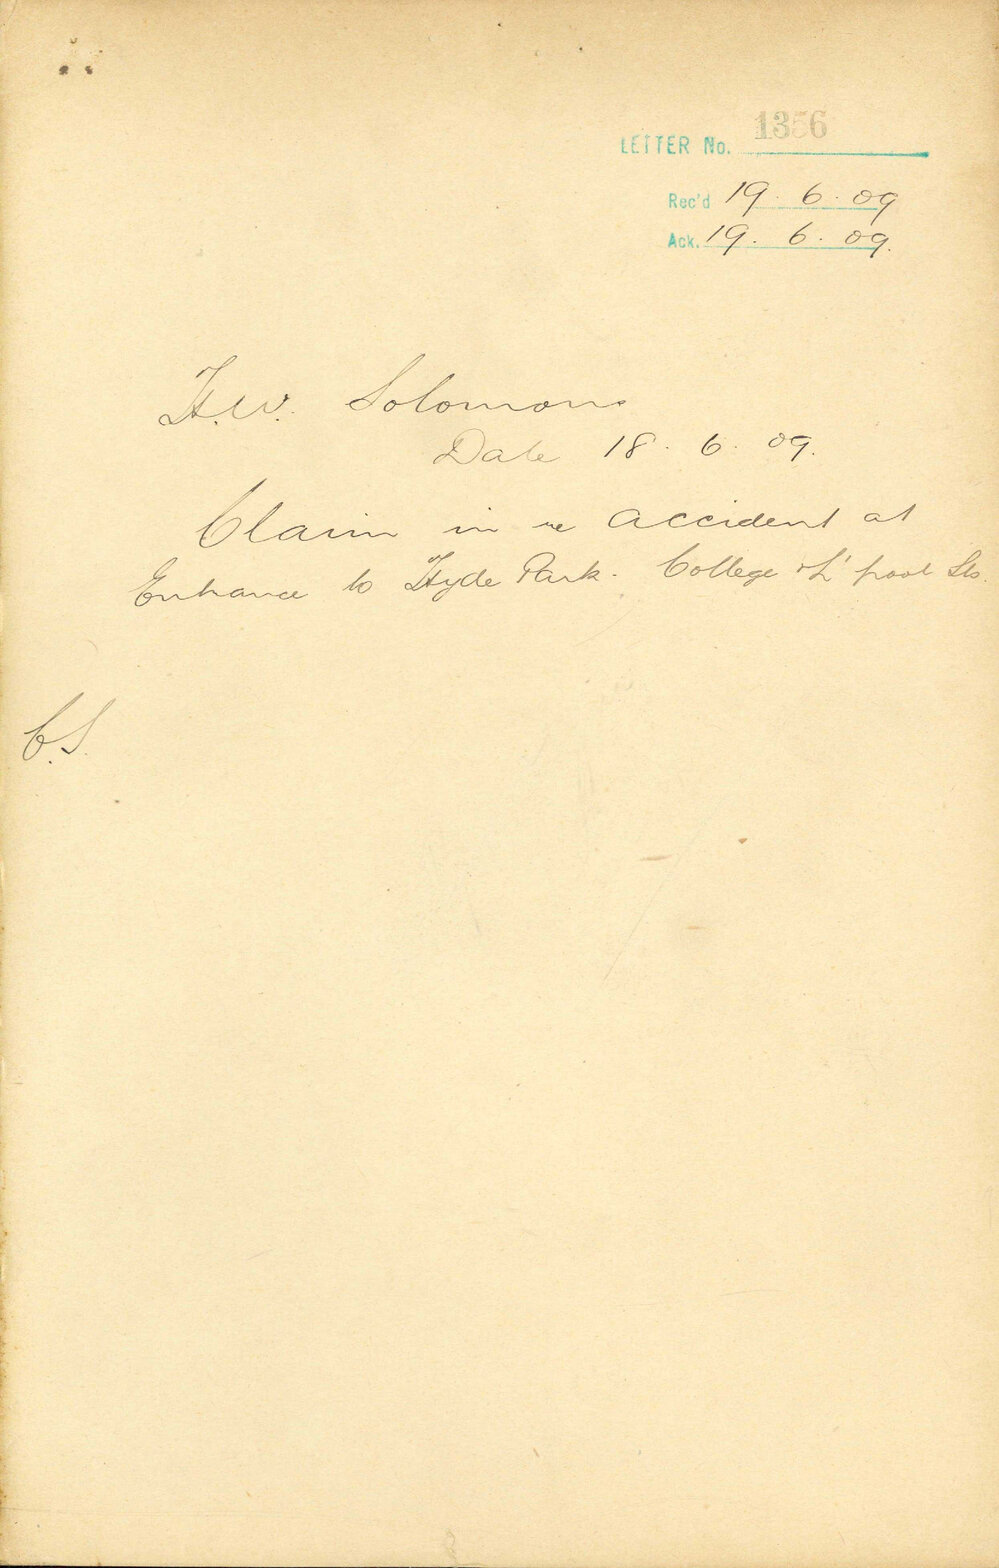 LETTER No. 1356
Rec'd 19. 6. 09
Ack. 19. 6. 09.
H.W. Solomons
Date 18. 6. 09.
Claim in re accident at
Entrance to Hyde Park. College & L'pool Sts.
C.S.